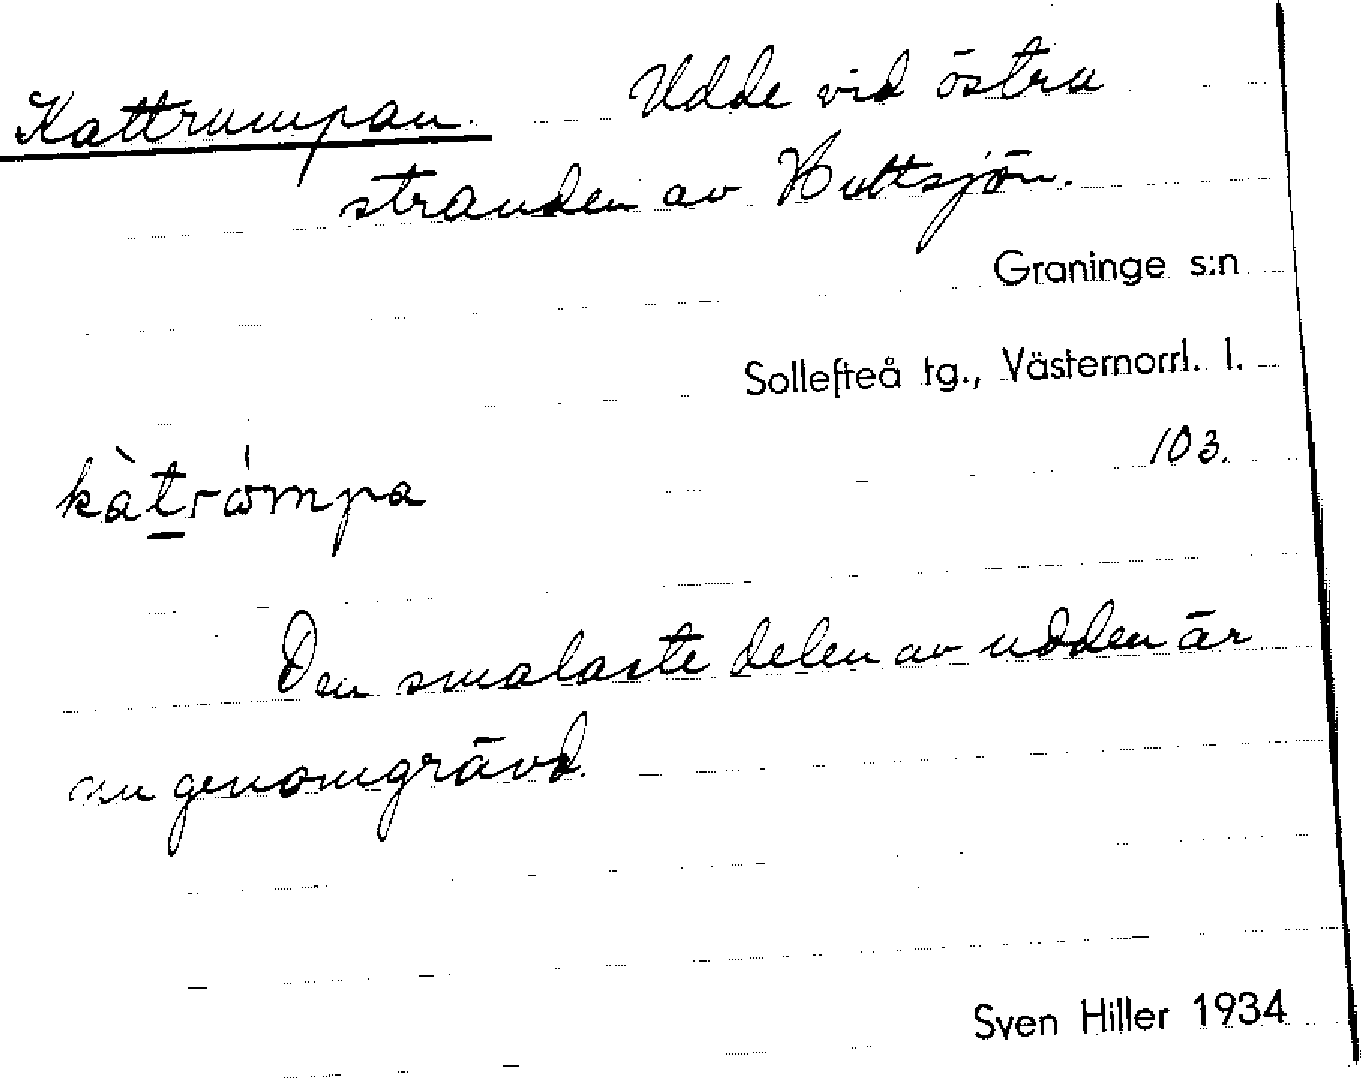 Kattrumpan. Udde vid östra
stranden av Buttsjön.
Graninge s:n
Sollefteå tg., Västernorrl. l.
103.
kàtrómpa
Den smalaste delen av udden är
nu genomgrävd.
Sven Hiller 1934